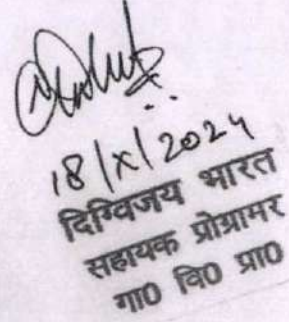 18/X/2024
दिग्विजय भारत
सहायक प्रोग्रामर
गा0 वि0 प्रा0